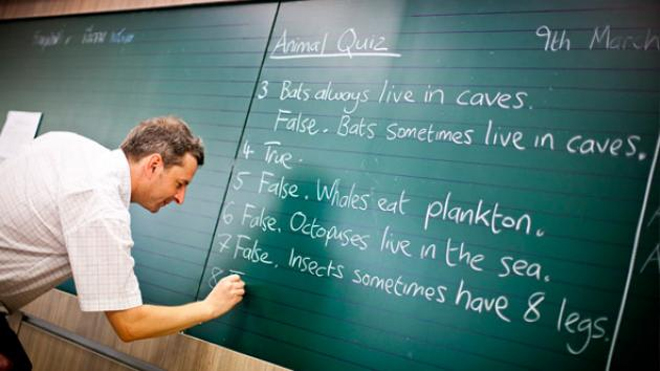 Animal Quiz
9th March
3 Bats always live in caves.
False. Bats sometimes live in caves.
4 True.
5 False. Whales eat plankton.
6 False. Octopuses live in the sea.
7 False. Insects sometimes have 8 legs.
8 T